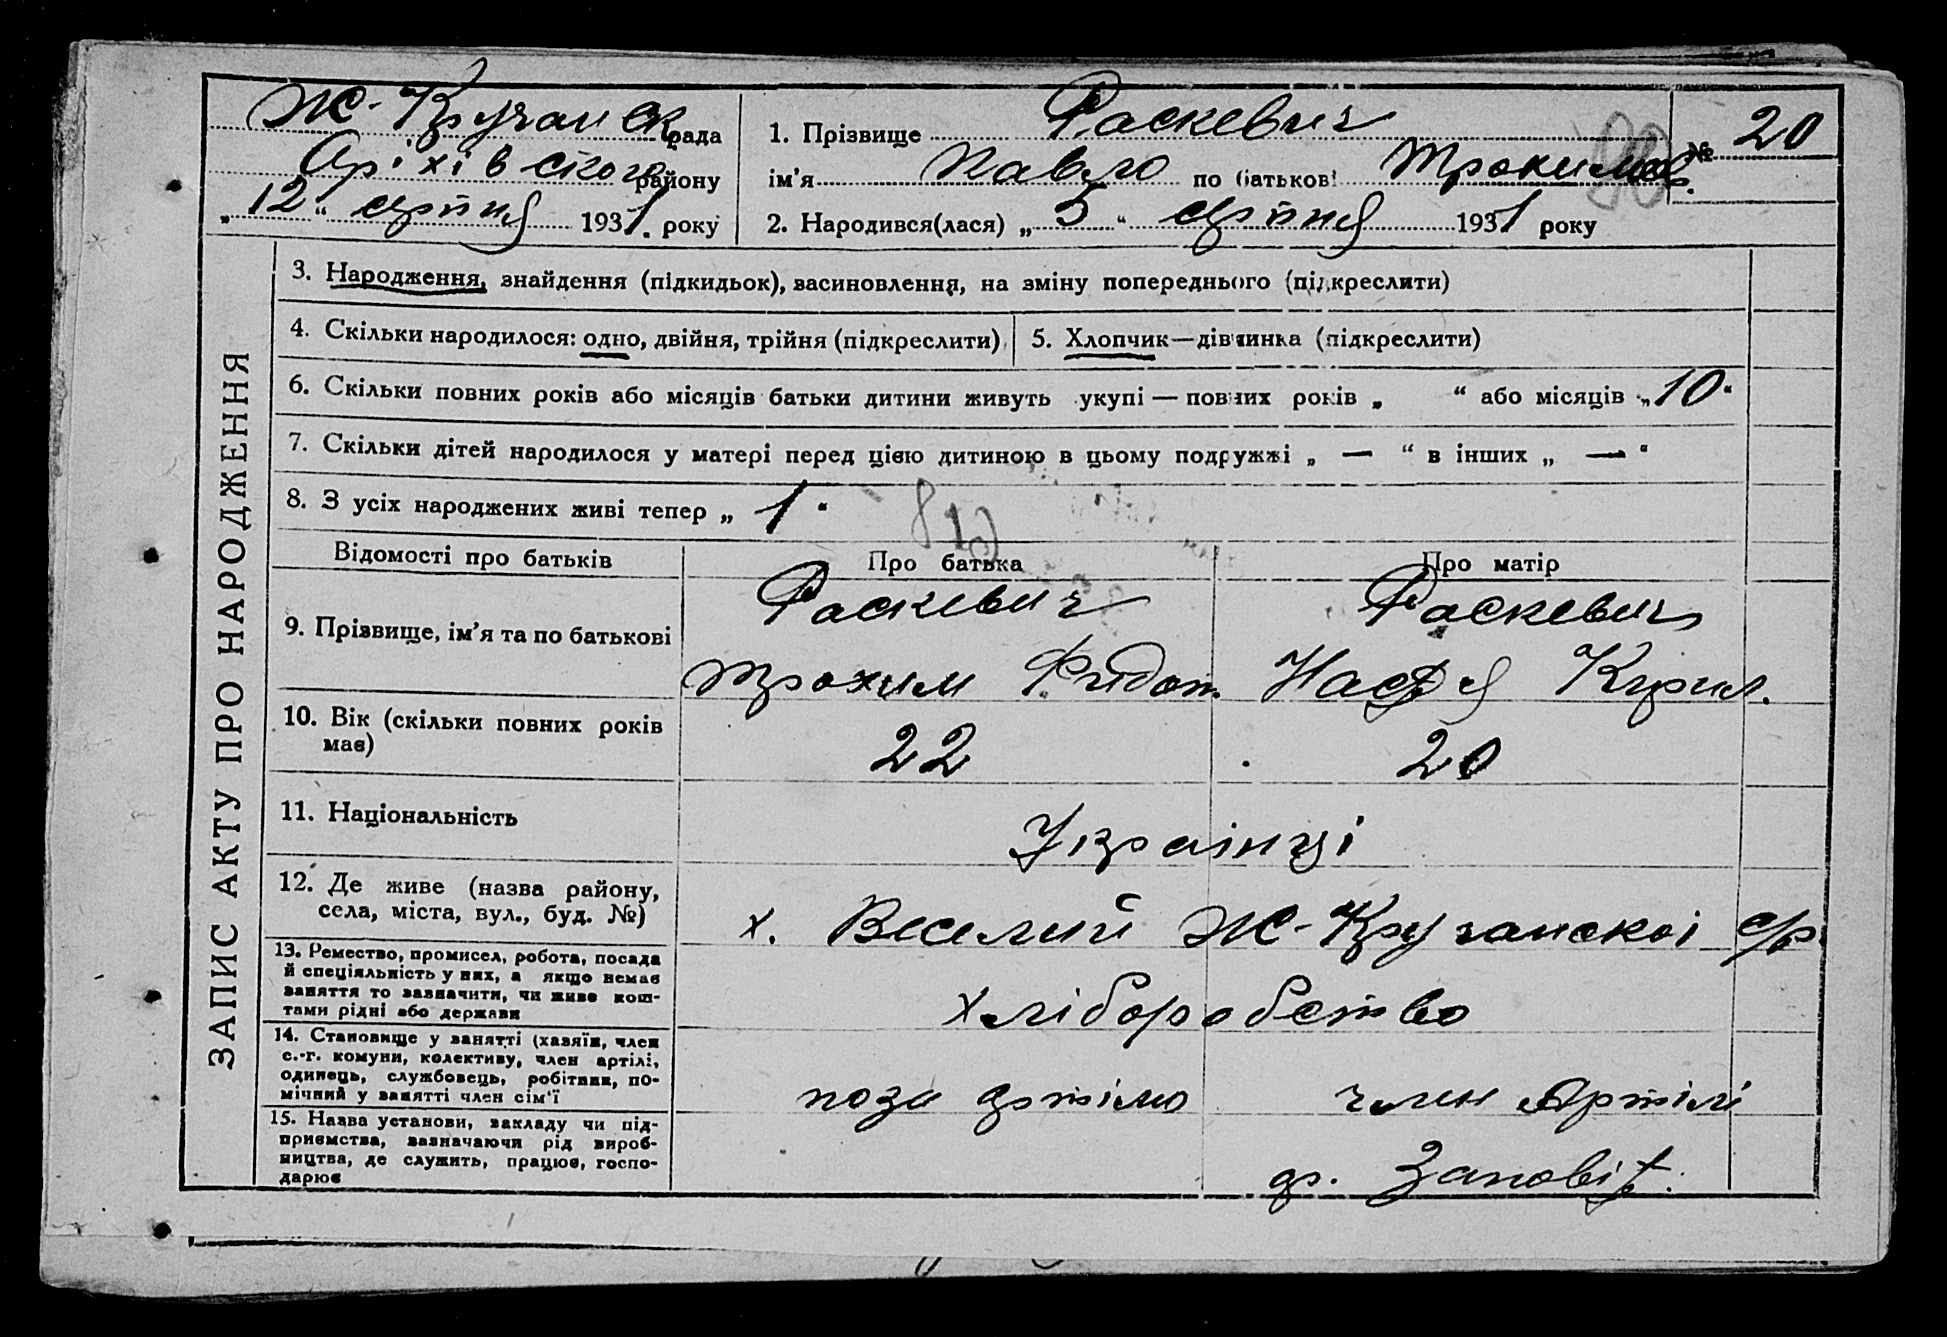 Ж-Кручанск рада
Оріхівського району
„12“ серпня 1931. року
1. Прізвище Раскевич
ім'я Павло по батькові Трохимов.
№ 20
2. Народився(лася) „5“ серпня 1931 року
ЗАПИС АКТУ ПРО НАРОДЖЕННЯ
3. Народження, знайдення (підкидьок), васиновлення, на зміну попереднього (підкреслити)
4. Скільки народилося: одно, двійня, трійня (підкреслити)
5. Хлопчик—дівчинка (підкреслити)
6. Скільки повних років або місяців батьки дитини живуть укупі — повних років „ “ або місяців „10“
7. Скільки дітей народилося у матері перед цією дитиною в цьому подружжі „ — “ в інших „ — “
8. З усіх народжених живі тепер „ 1 “
Відомості про батьків Про батька Про матір
9. Прізвище, ім'я та по батькові
Раскевич Раскевич
Трохим Федот. Настя Кирил.
10. Вік (скільки повних років
має)
22 20
11. Національність
Українці
12. Де живе (назва району,
села, міста, вул., буд. №)
х. Веселий Ж-Кручанської с/р
13. Ремество, промисел, робота, посада
й спеціяльність у них, а якщо немає
заняття то зазначити, чи живе кош-
тами рідні або держави
хліборобство
14. Становище у занятті (хазяїн, член
с.-г. комуни, колективу, член артілі,
одинець, службовець, робітник, по-
мічний у занятті член сім'ї
поза артілю член Артілі
15. Назва установи, закладу чи під-
приємства, зазначаючи рід вироб-
ництва, де служить, працює, госпо-
дарює
ар. Заповіт.